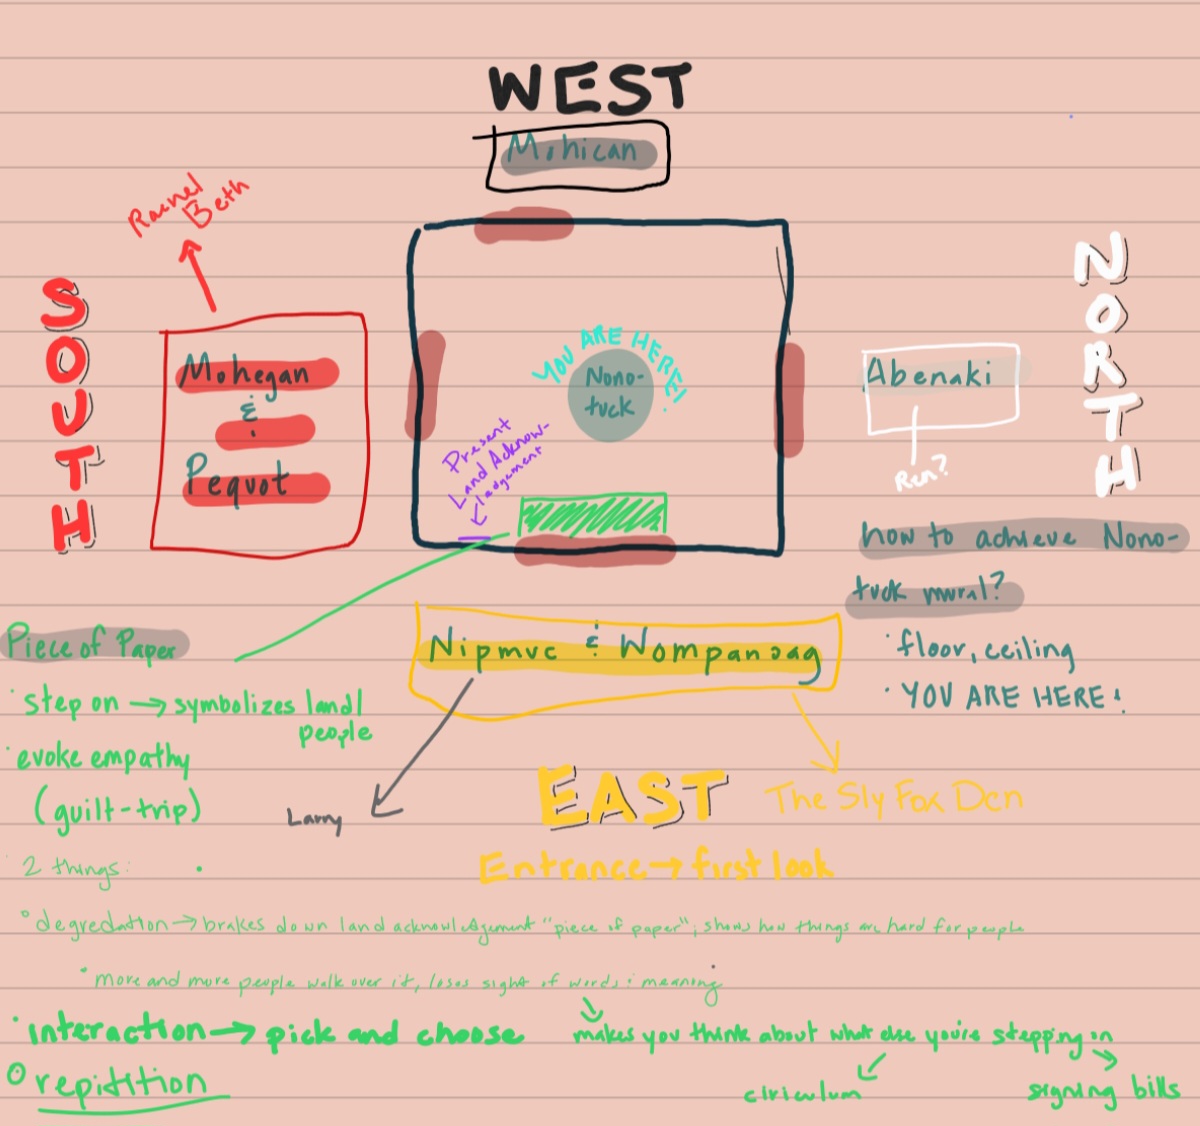 WEST
Mohican
Rachel
Beth
SOUTH
NORTH
Mohegan
&
Pequot
YOU ARE HERE!
Nono-
tuck
Abenaki
Ren?
Present
Land Acknow-
ledgement
how to achieve Nono-
tuck mural?
· floor, ceiling
· YOU ARE HERE!
Nipmuc & Wompanoag
Piece of Paper
· step on → symbolizes land/
people
· evoke empathy
(guilt-trip)
Larry
EAST
The Sly Fox Den
Entrance → first look
2 things:
° degredation → brakes down land acknowledgement "piece of paper"; shows how things are hard for people
° more and more people walk over it, loses sight of words & meaning
· interaction → pick and choose
makes you think about what else you're stepping on
ciriculum
signing bills
° repitition